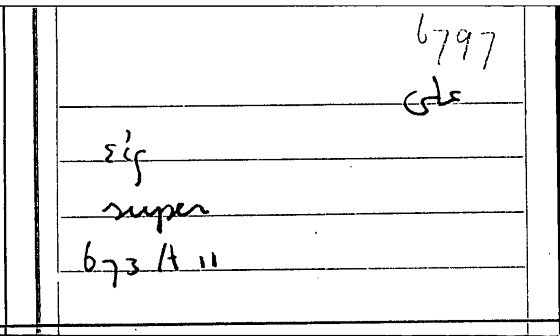 6797
εἰς
super
673 A 11